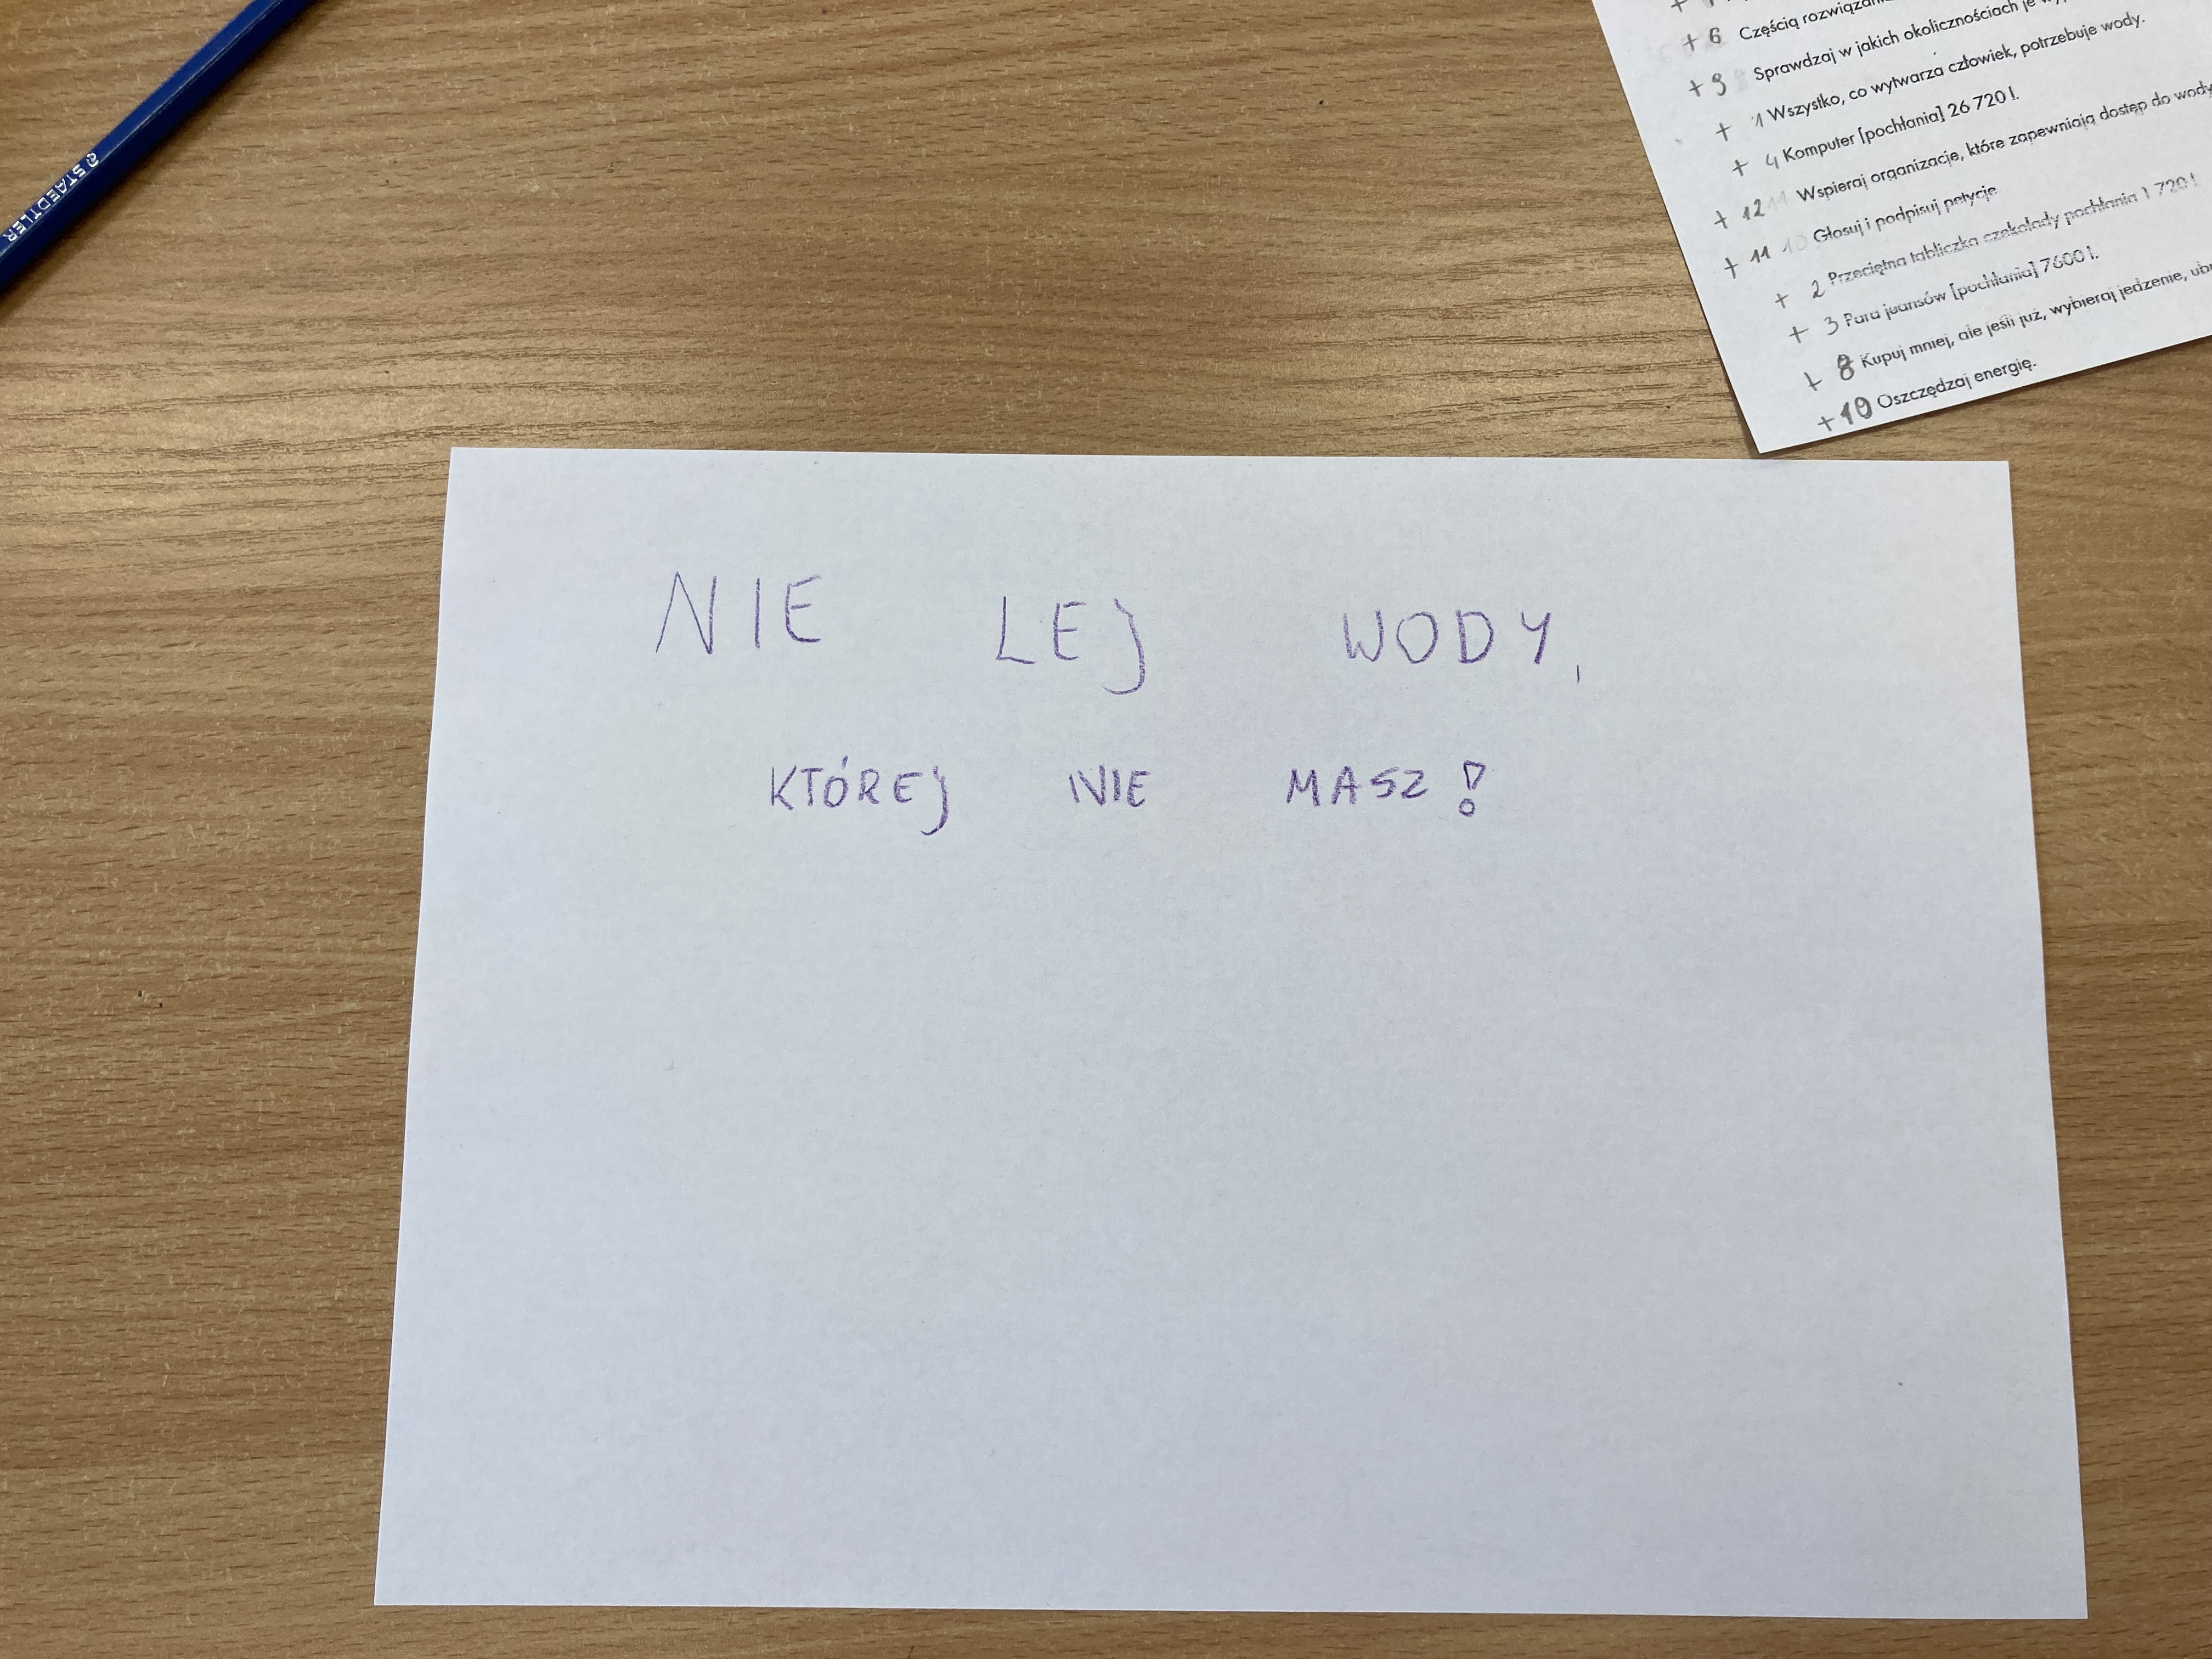 STAEDTLER
+ 6 Częścią
+ 9 Sprawdzaj w jakich okolicznościach je
+ 1 Wszystko, co wytwarza człowiek, potrzebuje wody.
+ 4 Komputer [pochłania] 26 720 l.
+ 12 Wspieraj organizacje, które zapewniają dostęp do wody
+ 11 Głosuj i podpisuj petycje.
+ 2 Przeciętna tabliczka czekolady pochłania 1 720 l.
+ 3 Para jeansów [pochłania] 7600 l.
+ 8 Kupuj mniej, ale jeśli już, wybieraj jedzenie,
+ 10 Oszczędzaj energię.
NIE LEJ WODY,
KTÓREJ NIE MASZ!